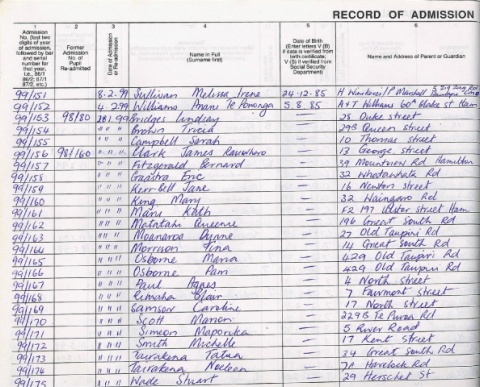 RECORD OF ADMISSION
1 2 3 4 5 6
Admission No. (last two digits of year of admission, followed by bar and serial number for that year, i.e., 86/1 86/2; 87/1 87/2, etc.)
Former Admission No. of Pupil Re-admitted
Date of Admission or Re-admission
Name in Full (Surname first)
Date of Birth (Enter letters V (B) if date is verified from birth certificate; V (S) if verified from Social Security Department)
Name and Address of Parent or Guardian
99/151 8.2.99 Sullivan Melissa Irene 24.12.85 H Marshall
99/152 4 2.99 Williams 5.8.85 A+T Williams 60A Blake St Ham
99/153 98/80 28 1.99 Bridges Lindsay — 28 Duke street
99/154 " " " Brown Tricia — 29B Queen street
99/155 " " " Campbell Sarah — 10 Thomas street
99/156 98/160 " " " Clark James Rawhoro — 13 George street
99/157 " " " Fitzgerald Bernard — 39 Mountview Rd Hamilton
99/158 " " " Gaastra Eric — 32 Whatawhata Rd
99/159 " " " Kerr-Bell Jane — 16 Newton street
99/160 " " " King Mary — 32 Waingaro Rd
99/161 " " " Mary Kath — F2 197 Ulster street Ham
99/162 " " " — 196 Great South Rd
99/163 " " " Moanaroa Dyane — 27 Old Taupiri Rd
99/164 " " " Morrison Tina — 14 Great South Rd
99/165 " " " Osborne Mana — 429 Old Taupiri Rd
99/166 " " " Osborne Pam — 429 Old Taupiri Rd
99/167 " " " Paul Agnes — 4 North street
99/168 " " " — 7 Fairmont Street
99/169 " " " Samson Caroline — 17 North street
99/170 " " " Scott Marion — 229B Te Puroa Rd
99/171 " " " Simeon Maporika — 5 River Road
99/172 " " " Smith Michelle — 17 Kent Street
99/173 " " " Tairakena — 34 Great South Rd
99/174 " " " Tairakena Noeleen — 7A Havelock Rd
99/175 " " " Wade Stuart — 29 Herschel St